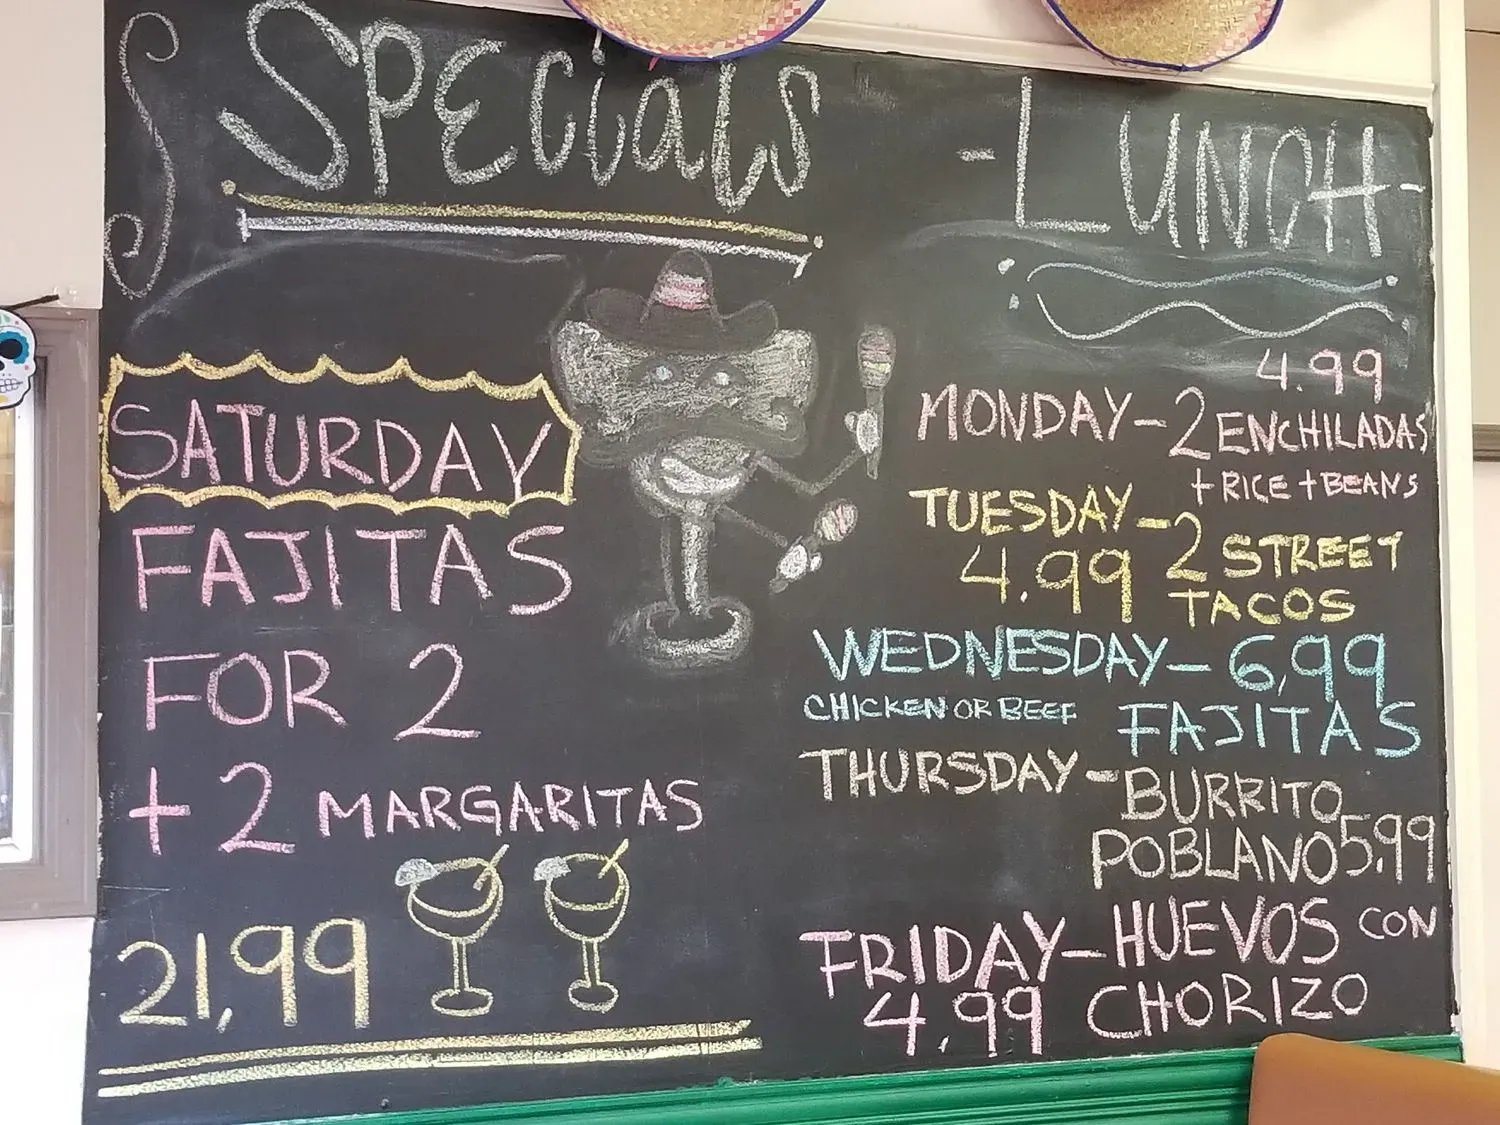 Specials
SATURDAY
FAJITAS
FOR 2
+ 2 MARGARITAS
21,99
-LUNCH-
4.99
MONDAY-2 ENCHILADAS
+RICE +BEANS
TUESDAY-2 STREET
4.99 TACOS
WEDNESDAY-6,99
CHICKEN OR BEEF FAJITAS
THURSDAY-BURRITO
POBLANO 5,99
FRIDAY-HUEVOS CON
4.99 CHORIZO